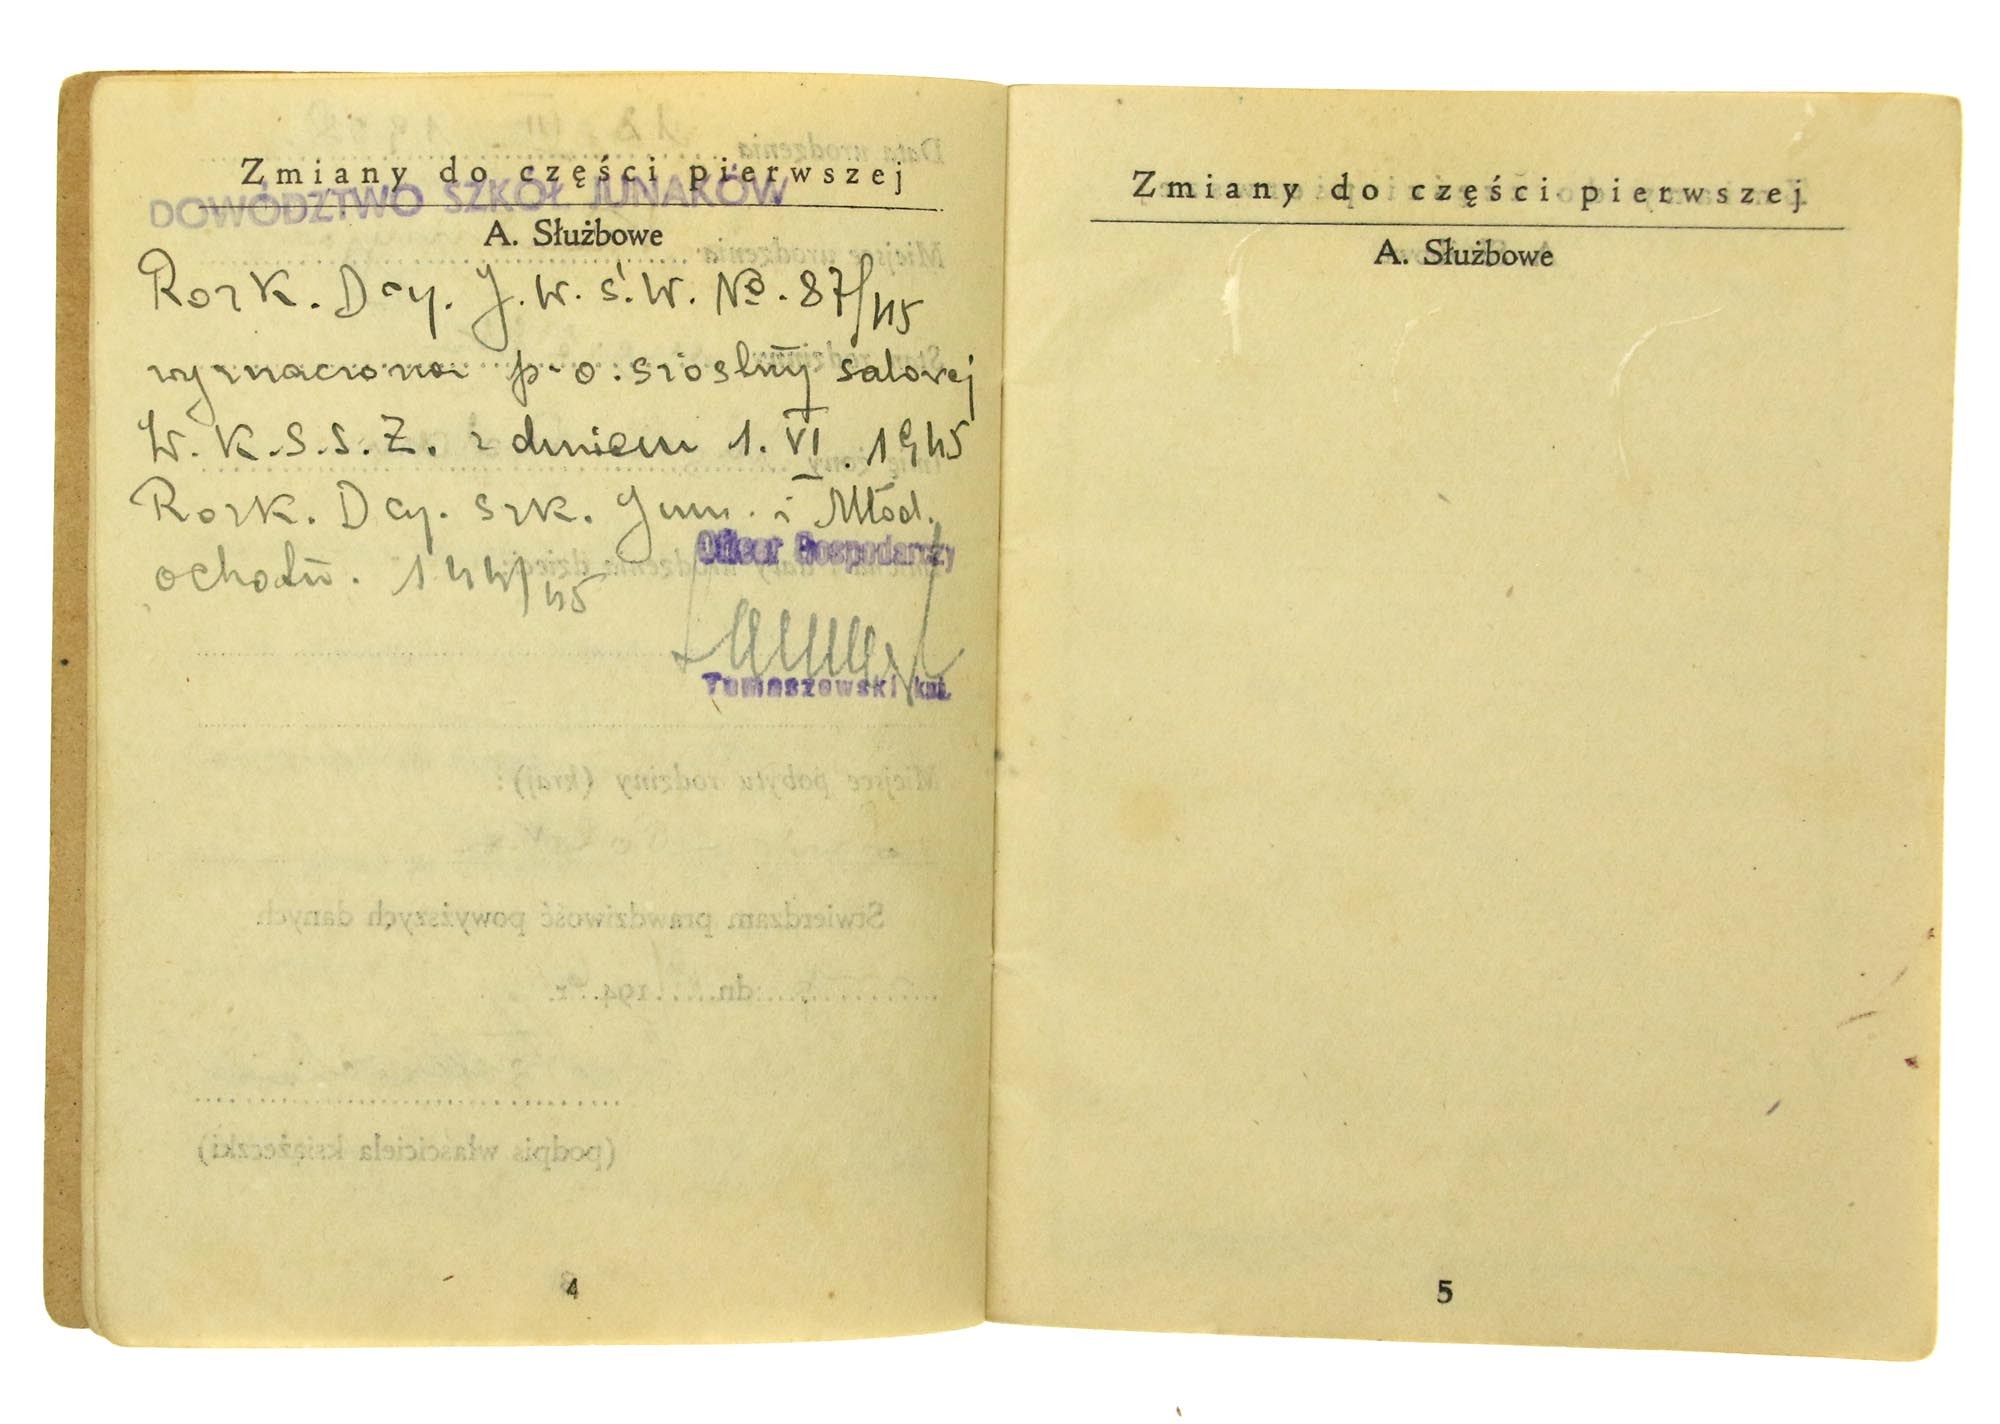 Zmiany do części pierwszej
DOWÓDZTWO SZKÓŁ JUNAKÓW
A. Służbowe
Rozk. Dcy. J.W.Ś.W. No. 87/45
wyznaczona p.o. siostry salowej
W.K.S.S.Z. z dniem 1.VI.1945
Rozk. Dcy. szk. Jun. i Młod.
ochotn. 144/45
Oficer Gospodarczy
Tomaszewski kpt.
4
Zmiany do części pierwszej
A. Służbowe
5